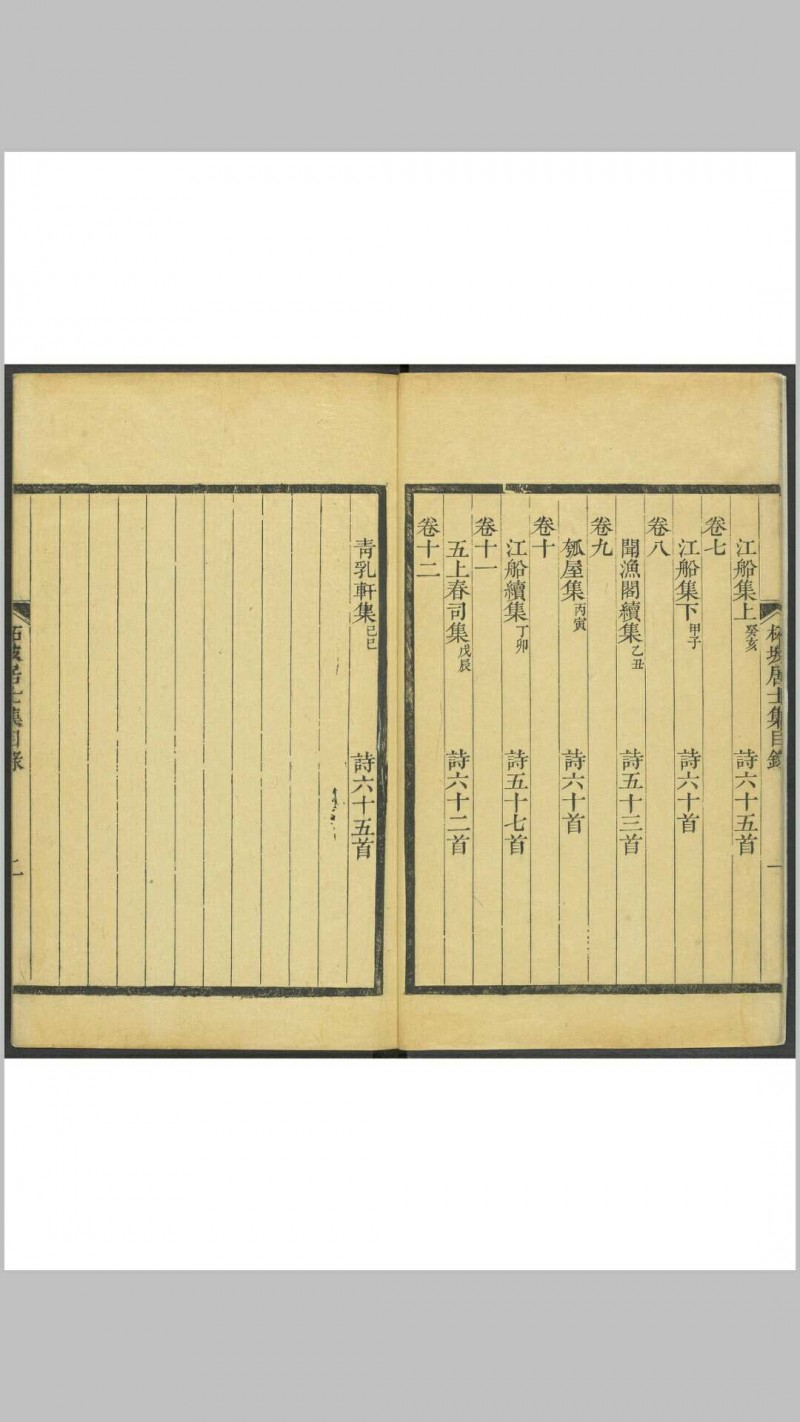 江船集上癸亥 詩六十五首
卷七
江船集下甲子 詩六十首
卷八
聞漁閣續集乙丑 詩五十三首
卷九
瓠屋集丙寅 詩六十首
卷十
江船續集丁卯 詩五十七首
卷十一
五上春司集戊辰 詩六十二首
卷十二
青乳軒集己巳 詩六十五首
居士集目錄 一
居士集目錄 二